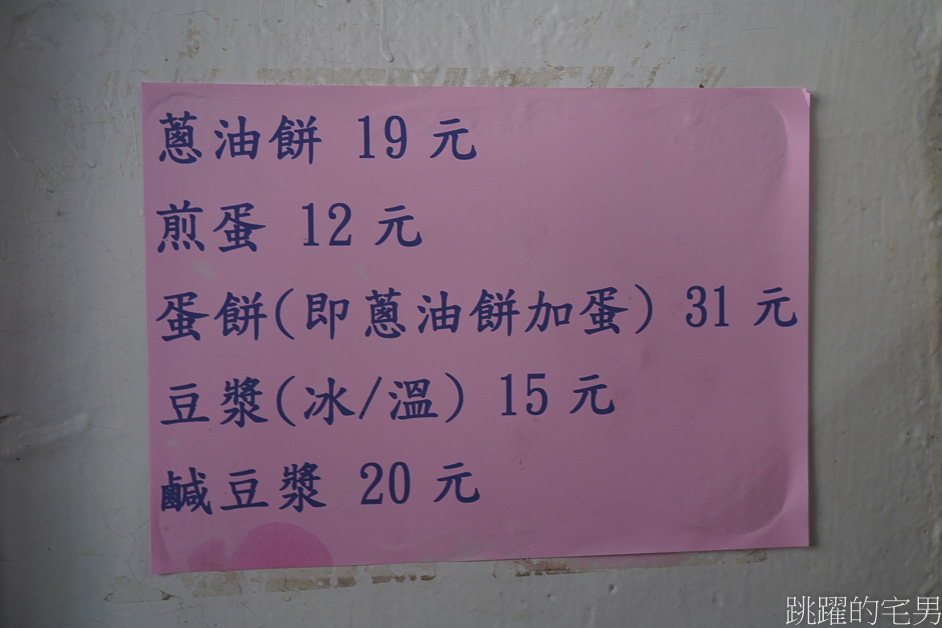 蔥油餅 19 元
煎蛋 12 元
蛋餅(即蔥油餅加蛋) 31 元
豆漿(冰/溫) 15 元
鹹豆漿 20 元
跳躍的宅男